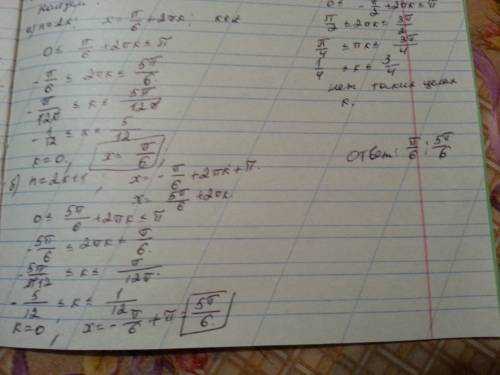 а) n=2k; x= π/6 +2πk; k∈Z
0 ≤ π/6 +2πk ≤ π
-π/6 ≤ 2πk ≤ 5π/6
-π/12π ≤ k ≤ 5π/12π
-1/12 ≤ k ≤ 5/12
k=0, x= π/6;
б) n=2k+1, x= -π/6 +2πk+π.
x= 5π/6 +2πk.
0 ≤ 5π/6 +2πk ≤ π
-5π/6 ≤ 2πk ≤ π/6.
-5π/π12 ≤ k ≤ π/12π.
-5/12 ≤ k ≤ 1/12
k=0, x= -π/6 + π = 5π/6.
0 ≤ -π/2 +2πk ≤ π
π/2 ≤ 2πk ≤ 3π/2
π/4 ≤ πk ≤ 3π/4
1/4 ≤ k ≤ 3/4
нет таких целых
k.
Ответ: π/6; 5π/6